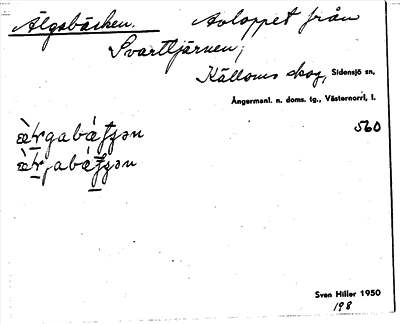 Älgabäcken. Avloppet från
Svarttjärnen;
Källoms skog, Sidensjö sn,
Ångermanl. n. doms. tg., Västernorrl. l.
560
Sven Hiller 1950
198